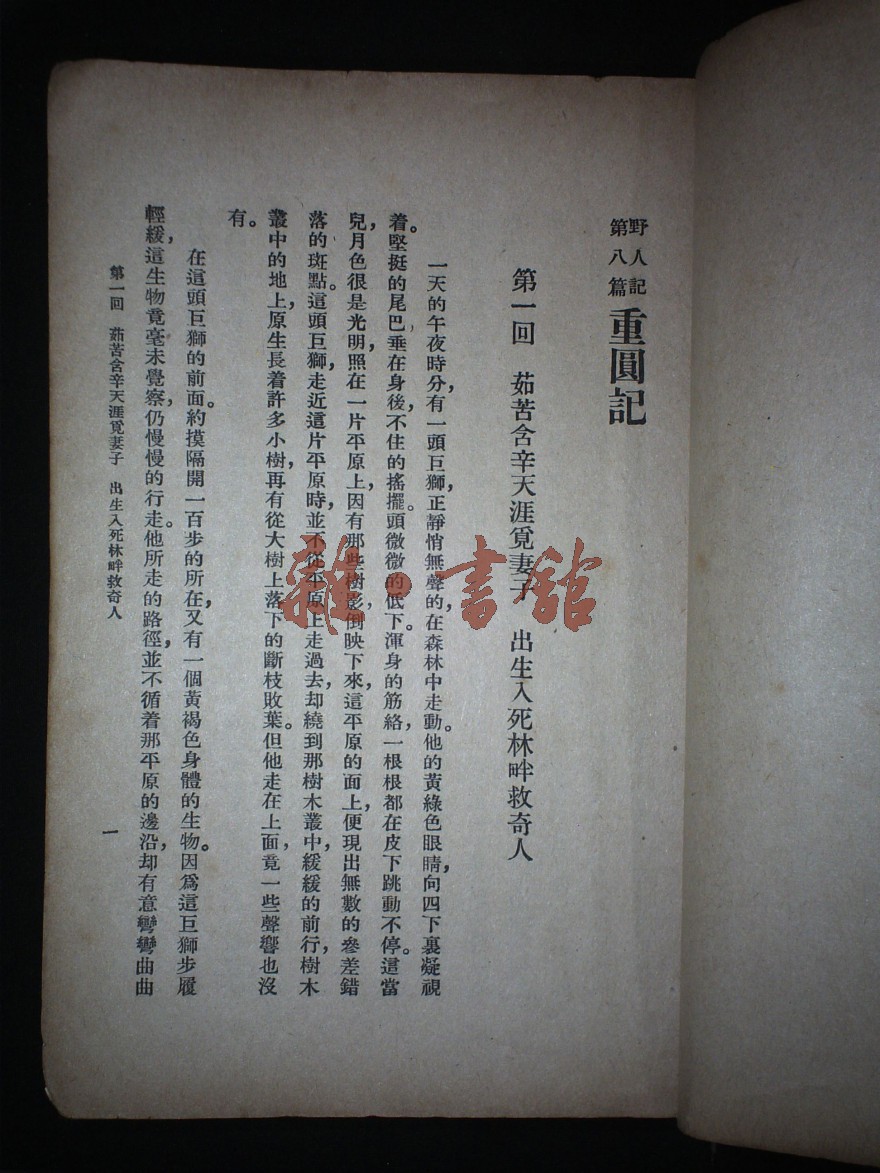 野人記
第八篇
重圓記
第一回　茹苦含辛天涯覓妻子　出生入死林畔救奇人
一天的午夜時分，有一頭巨獅，正靜悄無聲的，在森林中走動。他的黃綠色眼睛，向四下裏凝視
着。堅挺的尾巴垂在身後，不住的搖擺。頭微微的低下。渾身的筋絡，一根根都在皮下跳動不停。這當
兒，月色很是光明，照在一片平原上，因有那些樹影，倒映下來，這平原的面上，便現出無數的參差錯
落的斑點。這頭巨獅，走近這片平原時，並不從平原上走過去，却繞到那樹木叢中，緩緩的前行，樹木
叢中的地上，原生長着許多小樹，再有從大樹上落下的斷枝敗葉。但他走在上面，竟一些聲響也沒
有。
在這頭巨獅的前面。約摸隔開一百步的所在，又有一個黃褐色身體的生物。因爲這巨獅步履
輕緩，這生物竟毫未覺察，仍慢慢的行走。他所走的路徑，並不循着那平原的邊沿，却有意彎彎曲曲
第一回　茹苦含辛天涯覓妻子　出生入死林畔救奇人
一
雜·書館